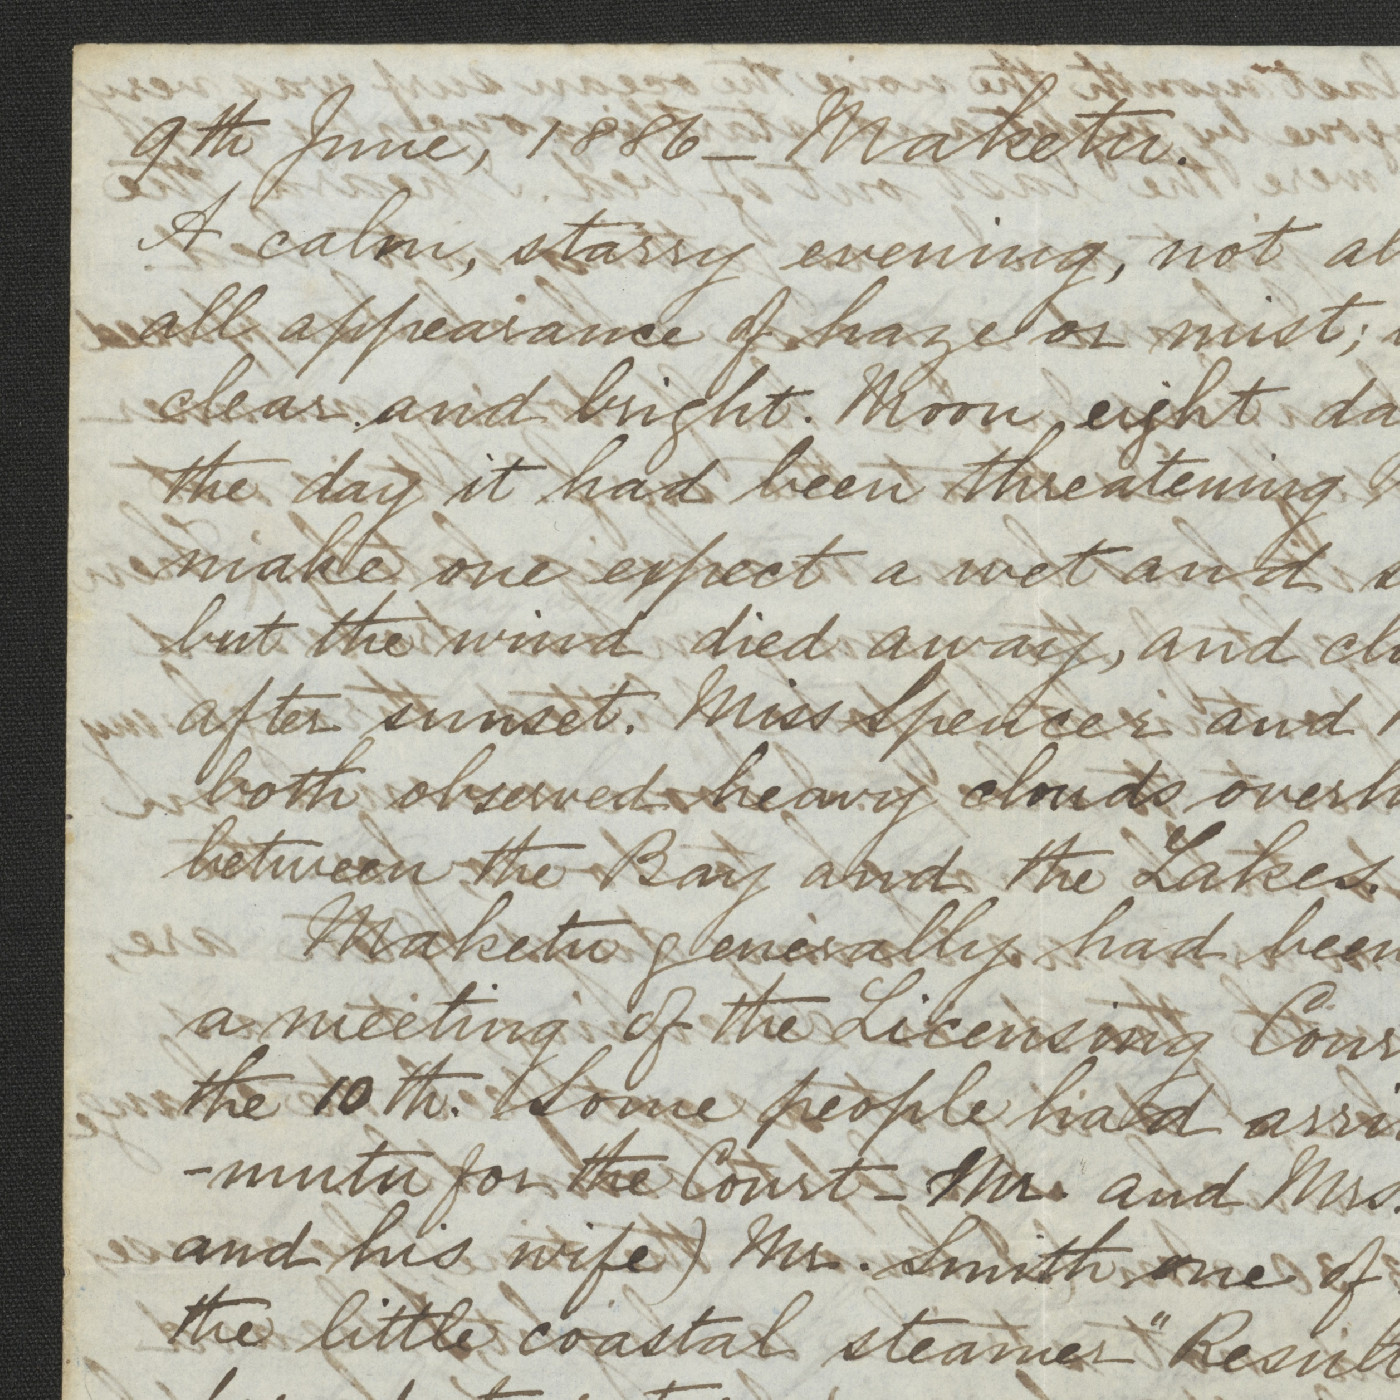 9th June, 1886 — Maketu.
A calm, starry evening, not
all appearance of haze or mist;
clear and bright. Moon eight
the day it had been threatening
make one expect a wet and
but the wind died away, and
after sunset. Miss Spencer and
both observed heavy clouds
between the Bay and the Lakes.
Maketu generally had been
a meeting of the Licensing
the 10th. Some people had
-mutu for the Court — Mr. and Mrs.
and his wife) Mr. Smith one of
the little coastal steamer "